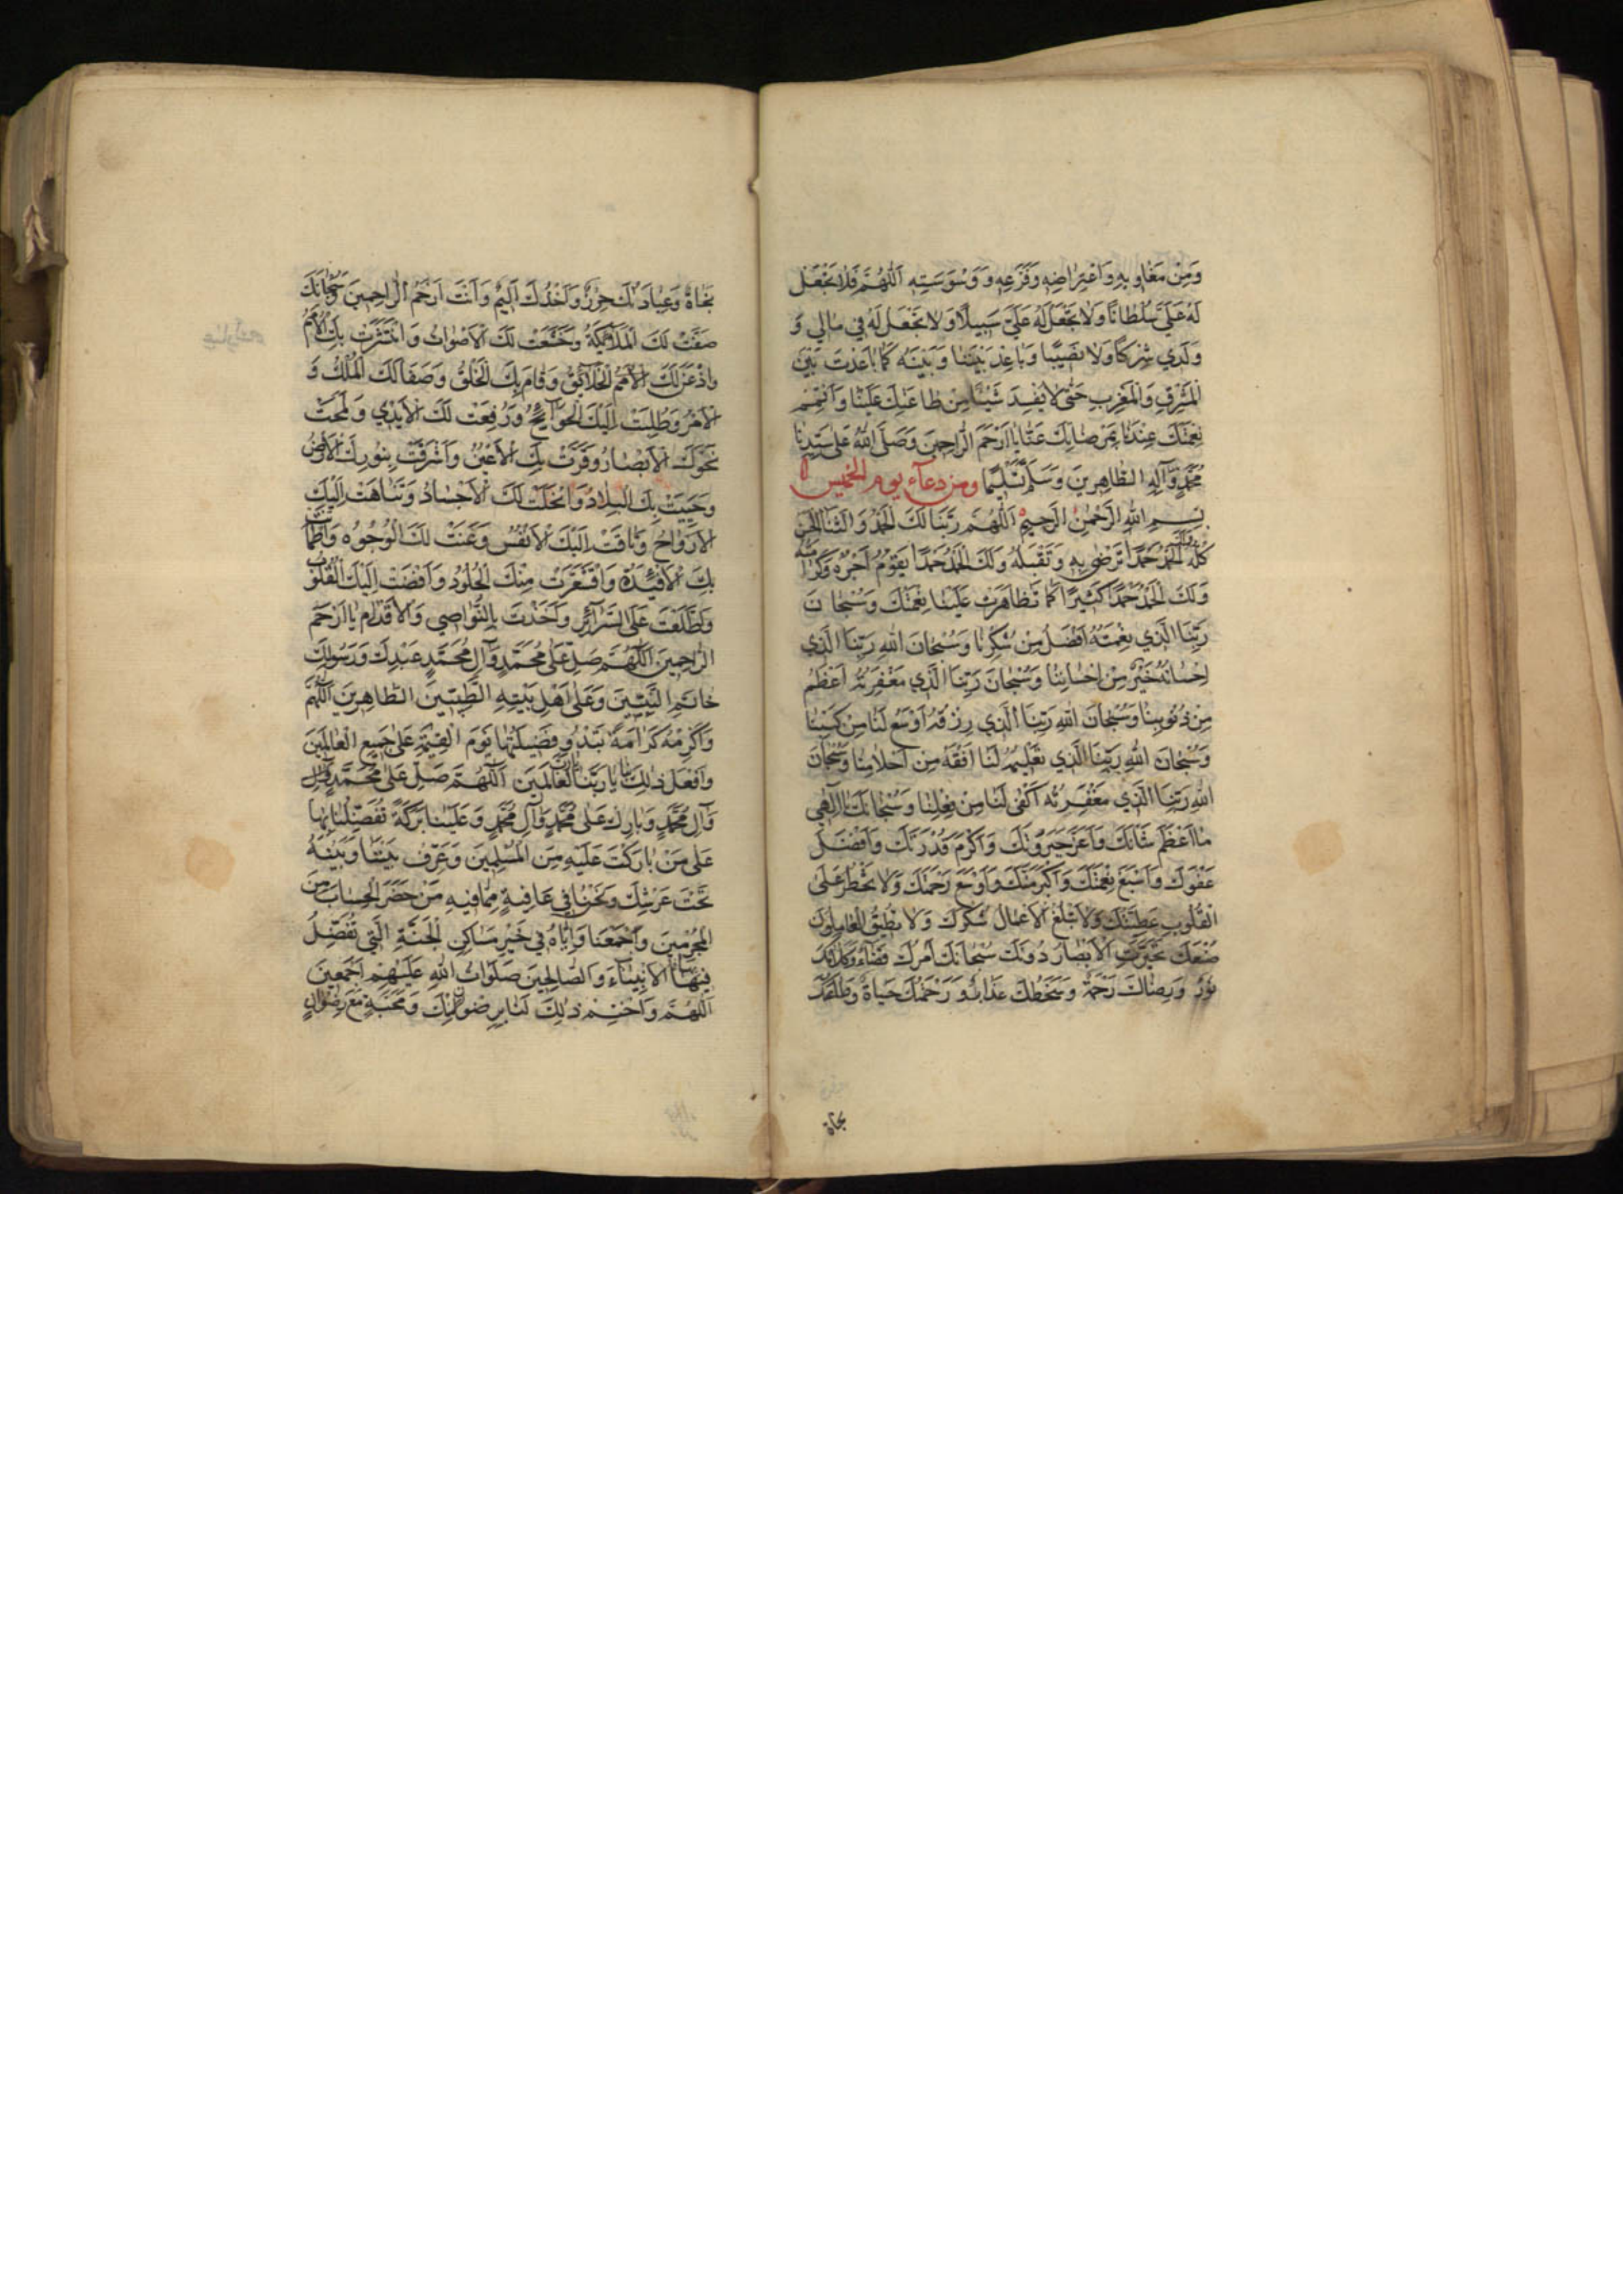 وَمِنْ مَغَاوِبِهِ وَاعْتِرَاضِهِ وَفَزَعِهِ وَوَسْوَسَتِهِ اَللّٰهُمَّ فَلَا تَجْعَلْ
لَهُ عَلَيَّ سُلْطَانًا وَلَا تَجْعَلْ لَهُ عَلَيَّ سَبِيلًا وَلَا تَجْعَلْ لَهُ فِي مَالِي وَ
وَلَدِي شِرْكًا وَلَا نَصِيبًا وَبَاعِدْ بَيْنَنَا وَبَيْنَهُ كَمَا بَاعَدْتَ بَيْنَ
الْمَشْرِقِ وَالْمَغْرِبِ حَتَّى لَا يُفْسِدَ شَيْئًا مِنْ طَاعَتِكَ عَلَيْنَا وَاَتْمِمْ
نِعْمَتَكَ عِنْدَنَا بِمَرْضَاتِكَ عَنَّا يَا اَرْحَمَ الرَّاحِمِينَ وَصَلَّى اللهُ عَلَى سَيِّدِنَا
مُحَمَّدٍ وَآلِهِ الطَّاهِرِينَ وَسَلَّمَ تَسْلِيمًا ومن دعاء يوم الخميس
بِسْمِ اللهِ الرَّحْمٰنِ الرَّحِيمِ اَللّٰهُمَّ رَبَّنَا لَكَ الْحَمْدُ وَالثَّنَاءُ الْحَسَنُ
كُلُّهُ وَلَكَ الْحَمْدُ حَمْدًا تَرْضَى بِهِ وَتَقْبَلُهُ وَلَكَ الْحَمْدُ حَمْدًا يَقُومُ اَجْرُهُ وَكَرَامَتُهُ
وَلَكَ الْحَمْدُ حَمْدًا كَثِيرًا كَمَا تَظَاهَرَتْ عَلَيْنَا نِعْمَتُكَ وَسُبْحَانَ
رَبِّنَا الَّذِي نِعْمَتُهُ اَفْضَلُ مِنْ شُكْرِنَا وَسُبْحَانَ اللهِ رَبِّنَا الَّذِي
اِحْسَانُهُ خَيْرٌ مِنْ اِحْسَانِنَا وَسُبْحَانَ رَبِّنَا الَّذِي مَغْفِرَتُهُ اَعْظَمُ
مِنْ ذُنُوبِنَا وَسُبْحَانَ اللهِ رَبِّنَا الَّذِي رِزْقُهُ اَوْسَعُ لَنَا مِنْ كَسْبِنَا
وَسُبْحَانَ اللهِ رَبِّنَا الَّذِي تَعْلِيمُهُ لَنَا اَفْقَهُ مِنْ اَحْلَامِنَا وَسُبْحَانَ
اللهِ رَبِّنَا الَّذِي مَغْفِرَتُهُ اَكْفَى لَنَا مِنْ فِعْلِنَا وَسُبْحَانَكَ اِلٰهِي
مَا اَعْظَمَ شَأْنَكَ وَاَعَزَّ جَبَرُوتَكَ وَاَكْرَمَ قُدْرَتَكَ وَاَفْضَلَ
عَفْوَكَ وَاَسْبَغَ نِعْمَتَكَ وَاَكْبَرَ مَنَّكَ وَاَوْسَعَ رَحْمَتَكَ وَلَا تَخْطُرُ عَلَى
الْقُلُوبِ عَظَمَتُكَ وَلَا تَبْلُغُ الْاَعْمَالُ شُكْرَكَ وَلَا يُطِيقُ الْعَامِلُونَ
صُنْعَكَ تَحَيَّرَتِ الْاَبْصَارُ دُونَكَ سُبْحَانَكَ اَمْرُكَ قَضَاءٌ وَكَلَامُكَ
نُورٌ وَرِضَاكَ رَحْمَةٌ وَسَخَطُكَ عَذَابٌ وَرَحْمَتُكَ حَيَاةٌ وَطَاعَتُكَ
نجاة
نَجَاةٌ وَعِبَادَتُكَ حِرْزٌ وَاَخْذُكَ اَلِيمٌ وَاَنْتَ اَرْحَمُ الرَّاحِمِينَ وَسُبْحَانَكَ
صَفَّتْ لَكَ الْمَلَائِكَةُ وَخَشَعَتْ لَكَ الْاَصْوَاتُ وَانْتَشَرَتْ بِكَ الْاُمَمُ
وَاَذْعَنَ لَكَ الْاُمَمُ الْخَلَائِقُ وَقَامَ بِكَ الْخَلْقُ وَصَفَا لَكَ الْمُلْكُ وَ
الْاَمْرُ وَطُلِبَتْ اِلَيْكَ الْحَوَائِجُ وَرُفِعَتْ لَكَ الْاَيْدِي وَلَمَحَتْ
نَحْوَكَ الْاَبْصَارُ وَقَرَّتْ بِكَ الْاَعْيُنُ وَاَشْرَقَتْ بِنُورِكَ الْاَرْضُ
وَحَيِيَتْ بِكَ الْبِلَادُ وَانْحَلَّتْ لَكَ الْاَجْسَادُ وَتَنَاهَتْ اِلَيْكَ
الْاَرْوَاحُ وَتَاقَتْ اِلَيْكَ الْاَنْفُسُ وَعَنَتْ لَكَ الْوُجُوهُ وَاطْمَأَنَّتْ
بِكَ الْاَفْئِدَةُ وَاقْشَعَرَّتْ مِنْكَ الْجُلُودُ وَاَفْضَتْ اِلَيْكَ الْقُلُوبُ
وَاطَّلَعْتَ عَلَى السَّرَائِرِ وَاَخَذْتَ بِالنَّوَاصِي وَالْاَقْدَامِ يَا اَرْحَمَ
الرَّاحِمِينَ اَللّٰهُمَّ صَلِّ عَلَى مُحَمَّدٍ وَآلِ مُحَمَّدٍ عَبْدِكَ وَرَسُولِكَ
خَاتَمِ النَّبِيِّينَ وَعَلَى اَهْلِ بَيْتِهِ الطَّيِّبِينَ الطَّاهِرِينَ اَللّٰهُمَّ
وَاَكْرِمْهُ كَرَامَةً تَبْدُو فَضِيلَتُهَا يَوْمَ الْقِيٰمَةِ عَلَى جَمِيعِ الْعَالَمِينَ
وَافْعَلْ ذٰلِكَ بِنَا يَا رَبَّنَا يَا رَبَّ الْعَالَمِينَ اَللّٰهُمَّ صَلِّ عَلَى مُحَمَّدٍ وَآلِ
وَآلِ مُحَمَّدٍ وَبَارِكْ عَلَى مُحَمَّدٍ وَآلِ مُحَمَّدٍ وَعَلَيْنَا بَرَكَةً تُفَضِّلُنَا بِهَا
عَلَى مَنْ بَارَكْتَ عَلَيْهِ مِنَ الْمُسْلِمِينَ وَعَرِّفْ بَيْنَنَا وَبَيْنَهُ
تَحْتَ عَرْشِكَ وَنَحْنُ فِي عَافِيَةٍ مِمَّا فِيهِ مَنْ حَضَرَ الْحِسَابَ مِنَ
الْمُجْرِمِينَ وَاجْمَعْنَا وَاِيَّاهُ فِي خَيْرِ مَسَاكِنِ الْجَنَّةِ الَّتِي تُفَضِّلُ
فِيهَا الْاَنْبِيَاءَ وَالصَّالِحِينَ صَلَوَاتُ اللهِ عَلَيْهِمْ اَجْمَعِينَ
اَللّٰهُمَّ وَاخْتِمْ ذٰلِكَ لَنَا بِرِضْوَانِكَ وَمَحَبَّةٍ مَعَ رِضْوَانٍ